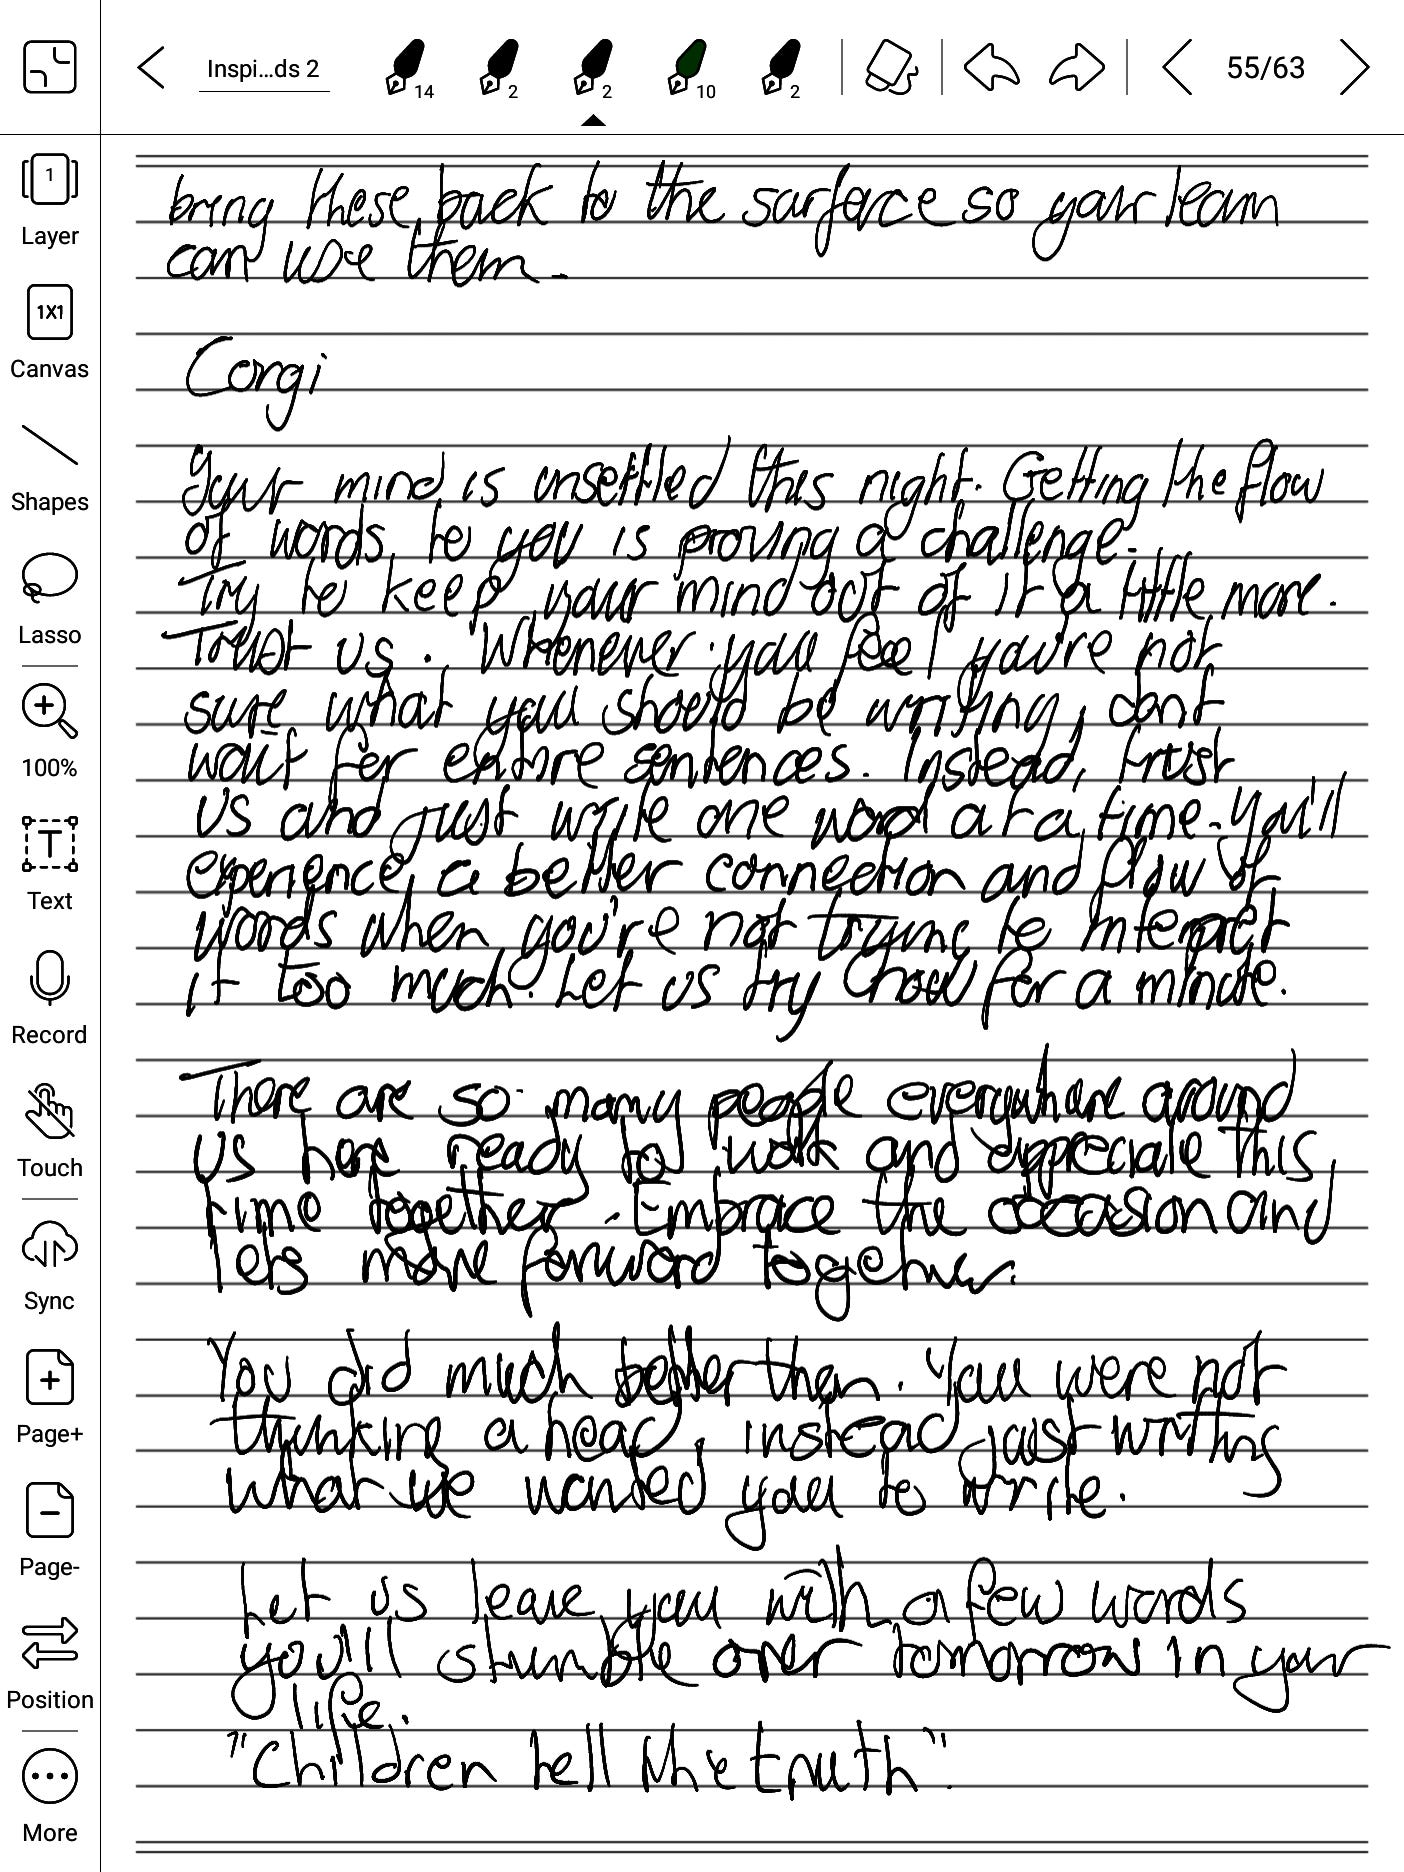 Inspi...ds 2
14
2
2
10
2
55/63
1
Layer
1X1
Canvas
Shapes
Lasso
100%
T
Text
Record
Touch
Sync
Page+
Page-
Position
More
bring these back to the surface so your team
can use them.
Corgi
Your mind is unsettled this night. Getting the flow
of words to you is proving a challenge.
Try to keep your mind out of it a little more.
Trust us. Whenever you feel you're not
sure what you should be writing, dont
wait for entire sentences. Instead, trust
us and just write one word at a time. You'll
experience a better connection and flow of
words when you're not trying to interpret
it too much. Let us try now for a minute.
There are so many people everywhere around
us here ready to walk and appreciate this
time together. Embrace the occasion and
lets move forward together.
You did much better then. You were not
thinking ahead, instead just writing
what we wanted you to write.
Let us leave you with a few words
you'll stumble over tomorrow in your
life.
"Children tell the truth".